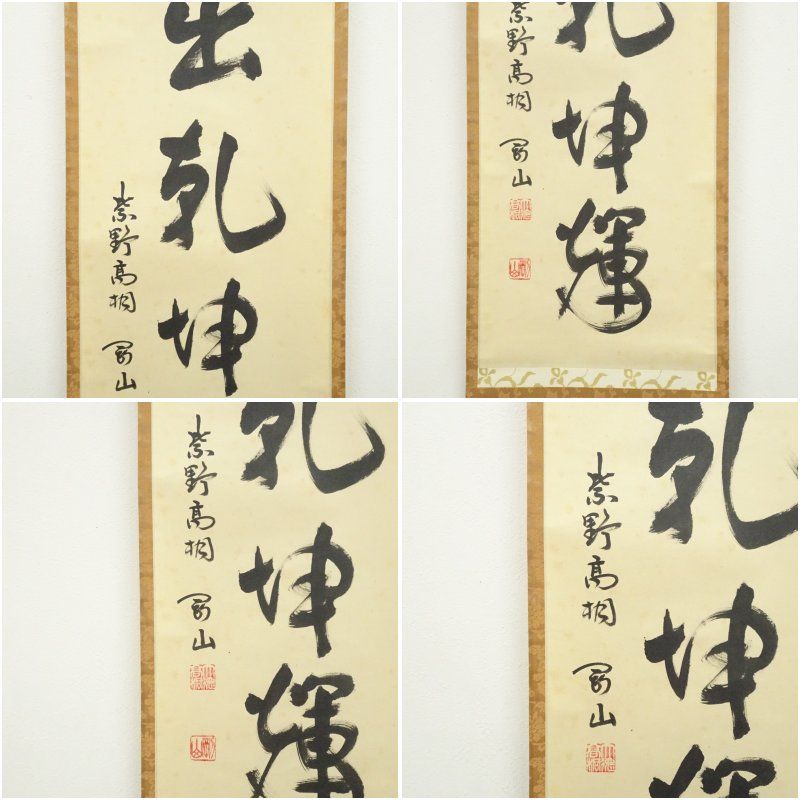 出乾坤
紫野高桐 剛山
乾坤輝
紫野高桐 剛山
乾坤輝
紫野高桐 剛山
乾坤輝
紫野高桐 剛山